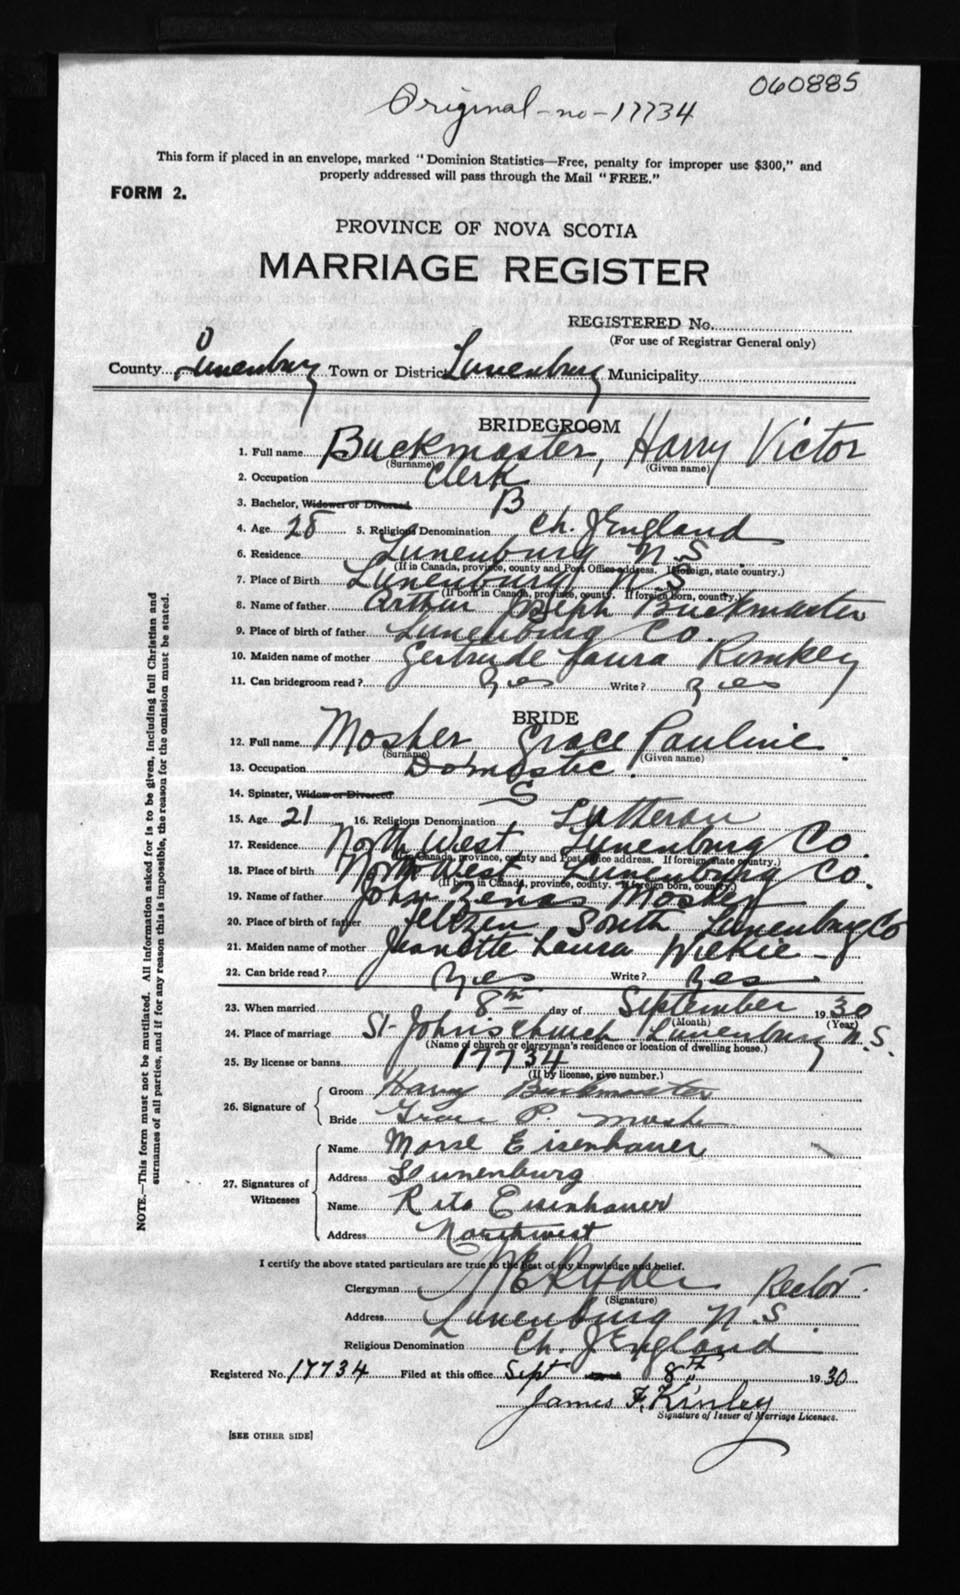 060885
Original-no-17734
This form if placed in an envelope, marked "Dominion Statistics—Free, penalty for improper use $300," and
properly addressed will pass through the Mail "FREE."
FORM 2.
PROVINCE OF NOVA SCOTIA
MARRIAGE REGISTER
REGISTERED No.
(For use of Registrar General only)
County Lunenburg Town or District Lunenburg Municipality
BRIDEGROOM
1. Full name Buckmaster, Harry Victor
(Surname) (Given name)
2. Occupation Clerk
3. Bachelor, Widower or Divorced B
4. Age 25 5. Religious Denomination Ch. of England
6. Residence Lunenburg N.S.
(If in Canada, province, county and Post Office address. If foreign, state country.)
7. Place of Birth Lunenburg N.S.
(If born in Canada, province, county. If foreign born, country.)
8. Name of father Arthur Joseph Buckmaster
9. Place of birth of father Lunenburg Co.
10. Maiden name of mother Gertrude Laura Romkey
11. Can bridegroom read? Yes Write? Yes
BRIDE
12. Full name Mosher, Grace Pauline
(Surname) (Given name)
13. Occupation Domestic.
14. Spinster, Widow or Divorced S
15. Age 21 16. Religious Denomination Lutheran
17. Residence North West, Lunenburg Co.
(If in Canada, province, county and Post Office address. If foreign state country.)
18. Place of birth North West, Lunenburg Co.
(If born in Canada, province, county. If foreign born, country.)
19. Name of father John Zenas Mosher
20. Place of birth of father Feltzen South Lunenburg Co
21. Maiden name of mother Jeanette Laura Wilkie
22. Can bride read? Yes Write? Yes
23. When married 8th day of September 1930
(Month) (Year)
24. Place of marriage St. John's church Lunenburg N.S.
(Name of church or clergyman's residence or location of dwelling house.)
25. By license or banns 17734
(If by license, give number.)
26. Signature of Groom Harry Buckmaster
Bride Grace P. Mosher
27. Signatures of Witnesses
Name Morse Eisenhauer
Address Lunenburg
Name Rita Eisenhauer
Address Northwest
I certify the above stated particulars are true to the best of my knowledge and belief.
Clergyman Ryder Rector.
(Signature)
Address Lunenburg N.S.
Religious Denomination Ch. of England
Registered No. 17734 Filed at this office Sept 8th 1930
James F. Kinley
Signature of Issuer of Marriage Licenses.
[SEE OTHER SIDE]
NOTE.—This form must not be mutilated. All information asked for is to be given, including full Christian and
surnames of all parties, and if for any reason this is impossible, the reason for the omission must be stated.